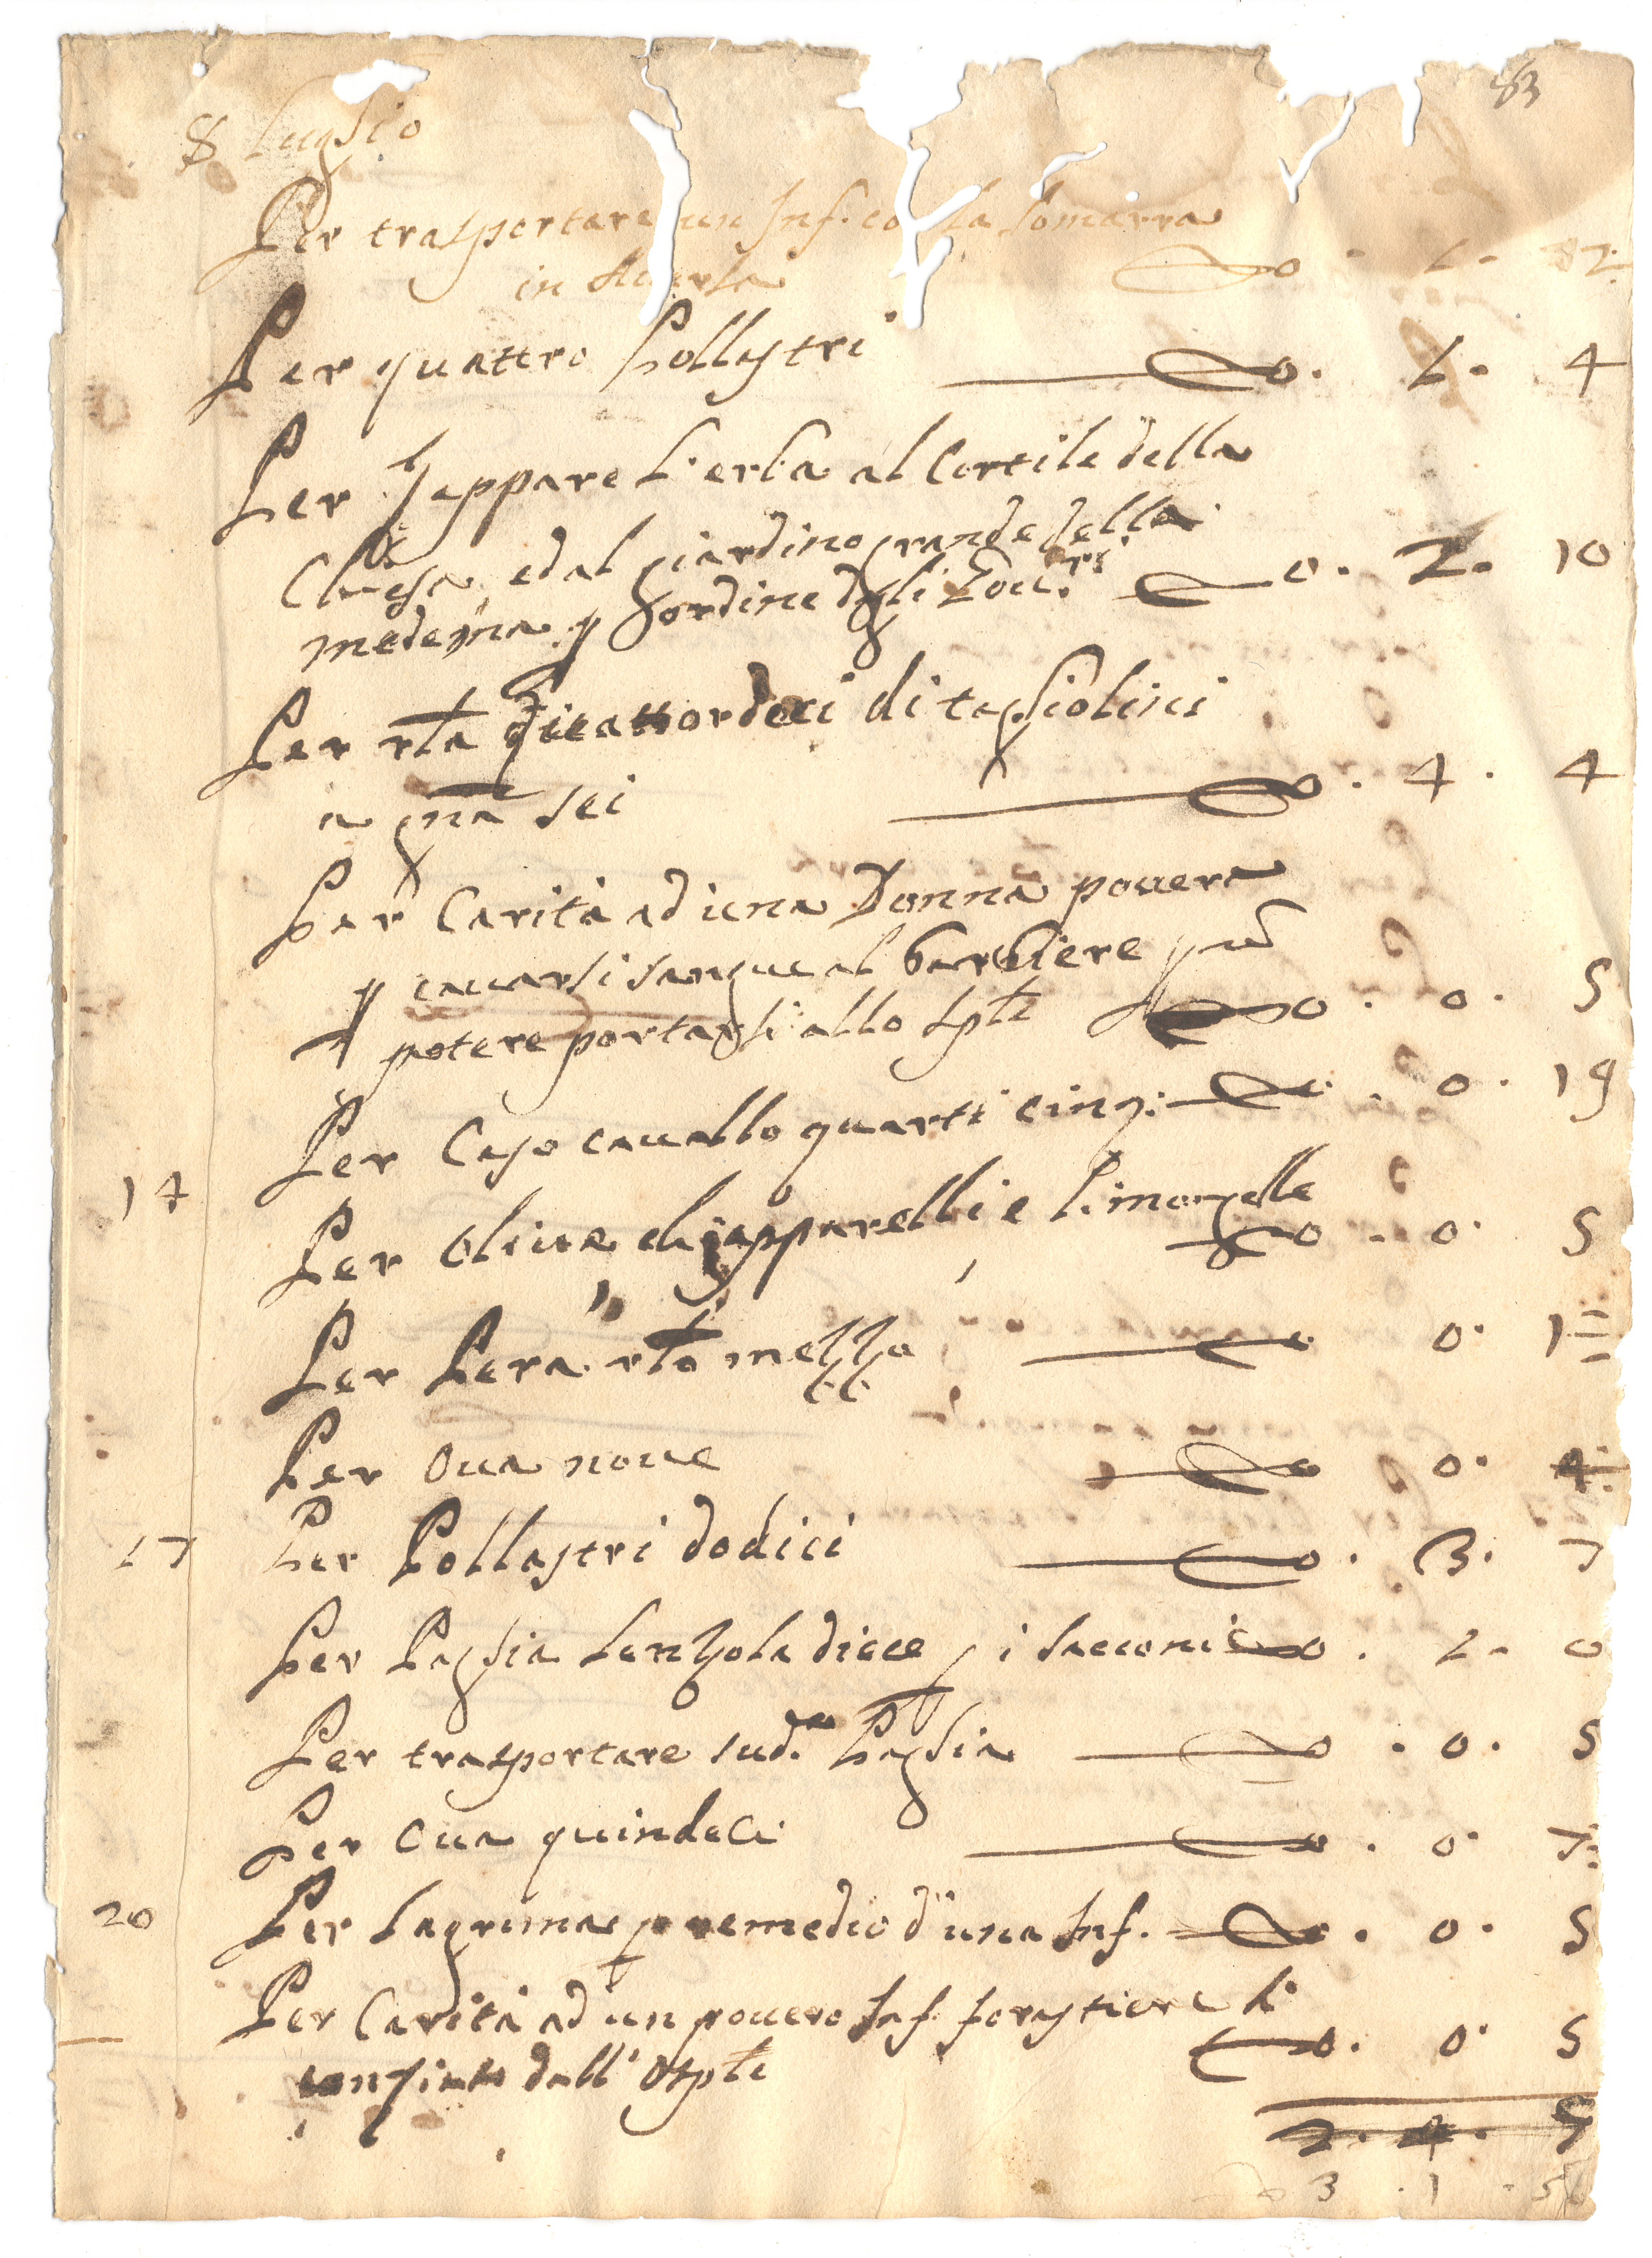 83
8 Luglio
Per trasportare un Inf. co la Somarra
in 0 - 1 - 12
Per quattro Pollastri 0. 1. 4
Per Zappare l'erba al Cortile della
Chiesa, ed al giardino grande della
medesma p ordine degli 0. 2. 10
Per rta quattordeci di tagliolini
a gna sei 0. 4. 4
Per Carità ad una Donna povera
p cavarsi sangue al barbiere p
potere portarsi allo Sple 0. 0. 5
Per Caso cavallo quarti cinq: 0. 0. 19
14
Per Olive chiapparelli e limongelle 0. 0. 5
Per Pera rto mezzo 0. 1
Per Ova nove 0. 4
17 Per Pollastri dodici 0. 3. 7
Per Paglia Lenzola diece p i sacconi 0. 1. 0
Per trasportare sud.a Paglia 0. 0. 5
Per Ova quindeci 0. 0. 7
20 Per Lagrima p remedio d'una Inf. 0. 0. 5
Per Carità ad un povero Inf. forastiere
dall'Osple 0. 0. 5
2. 4. 5
3. 1